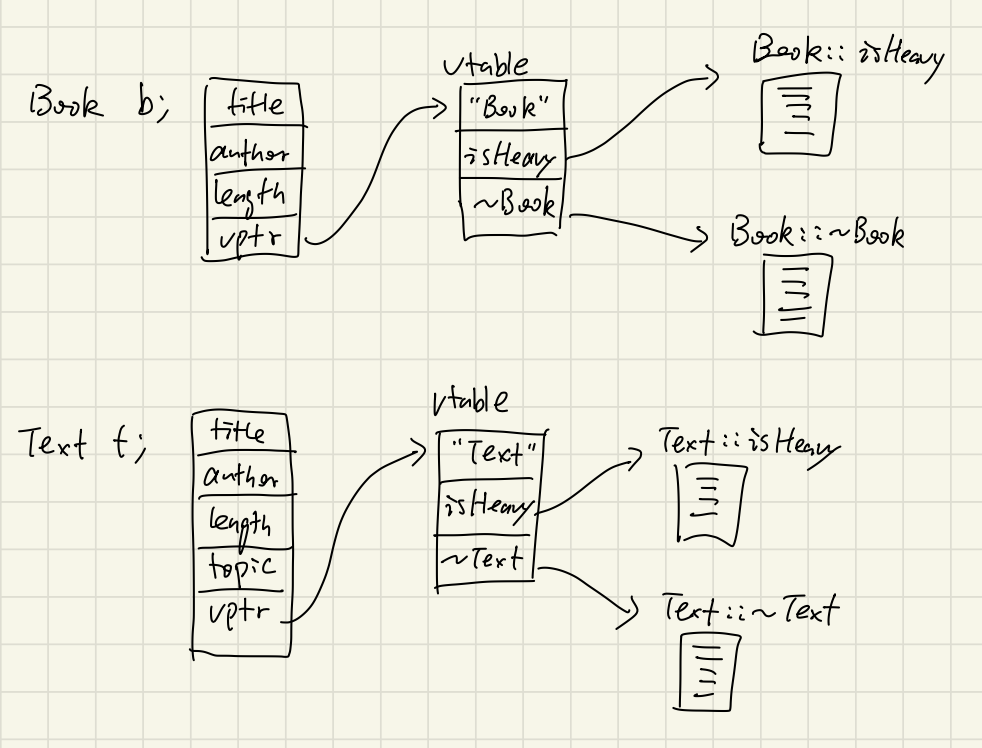 Book b;
title
author
length
vptr
vtable
"Book"
isHeavy
~Book
Book::isHeavy
Book::~Book
Text t;
title
author
length
topic
vptr
vtable
"Text"
isHeavy
~Text
Text::isHeavy
Text::~Text